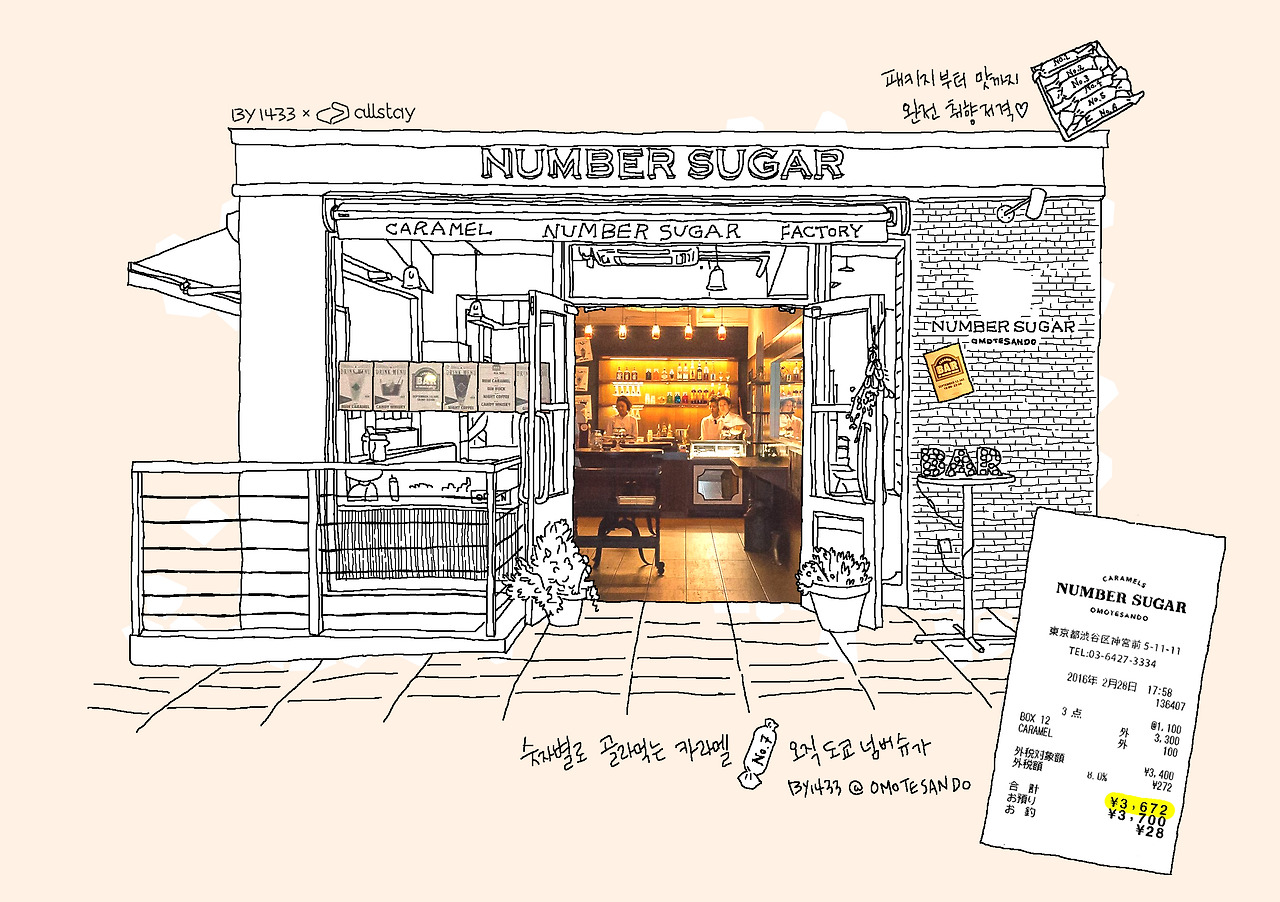 패키지부터 맛까지
완전 취향저격♡
No.1
No.2
No.3
No.4
No.5
No.6
BY1433 × allstay
NUMBER SUGAR
CARAMEL NUMBER SUGAR FACTORY
NUMBER SUGAR
OMOTESANDO
DRINK MENU
DRINK MENU
BAR
DRINK MENU
BAR
CARAMELS
NUMBER SUGAR
OMOTESANDO
東京都渋谷区神宮前 5-11-11
TEL:03-6427-3334
2016年 2月28日 17:58
136407
3 点
@1,100
BOX 12 外 3,300
CARAMEL 外 100
外税対象額 ¥3,400
外税額 8.0% ¥272
合 計 ¥3,672
お預り ¥3,700
お 釣 ¥28
숫자별로 골라먹는 카라멜 No.7 오직 도쿄 넘버슈가
BY1433 @ OMOTESANDO